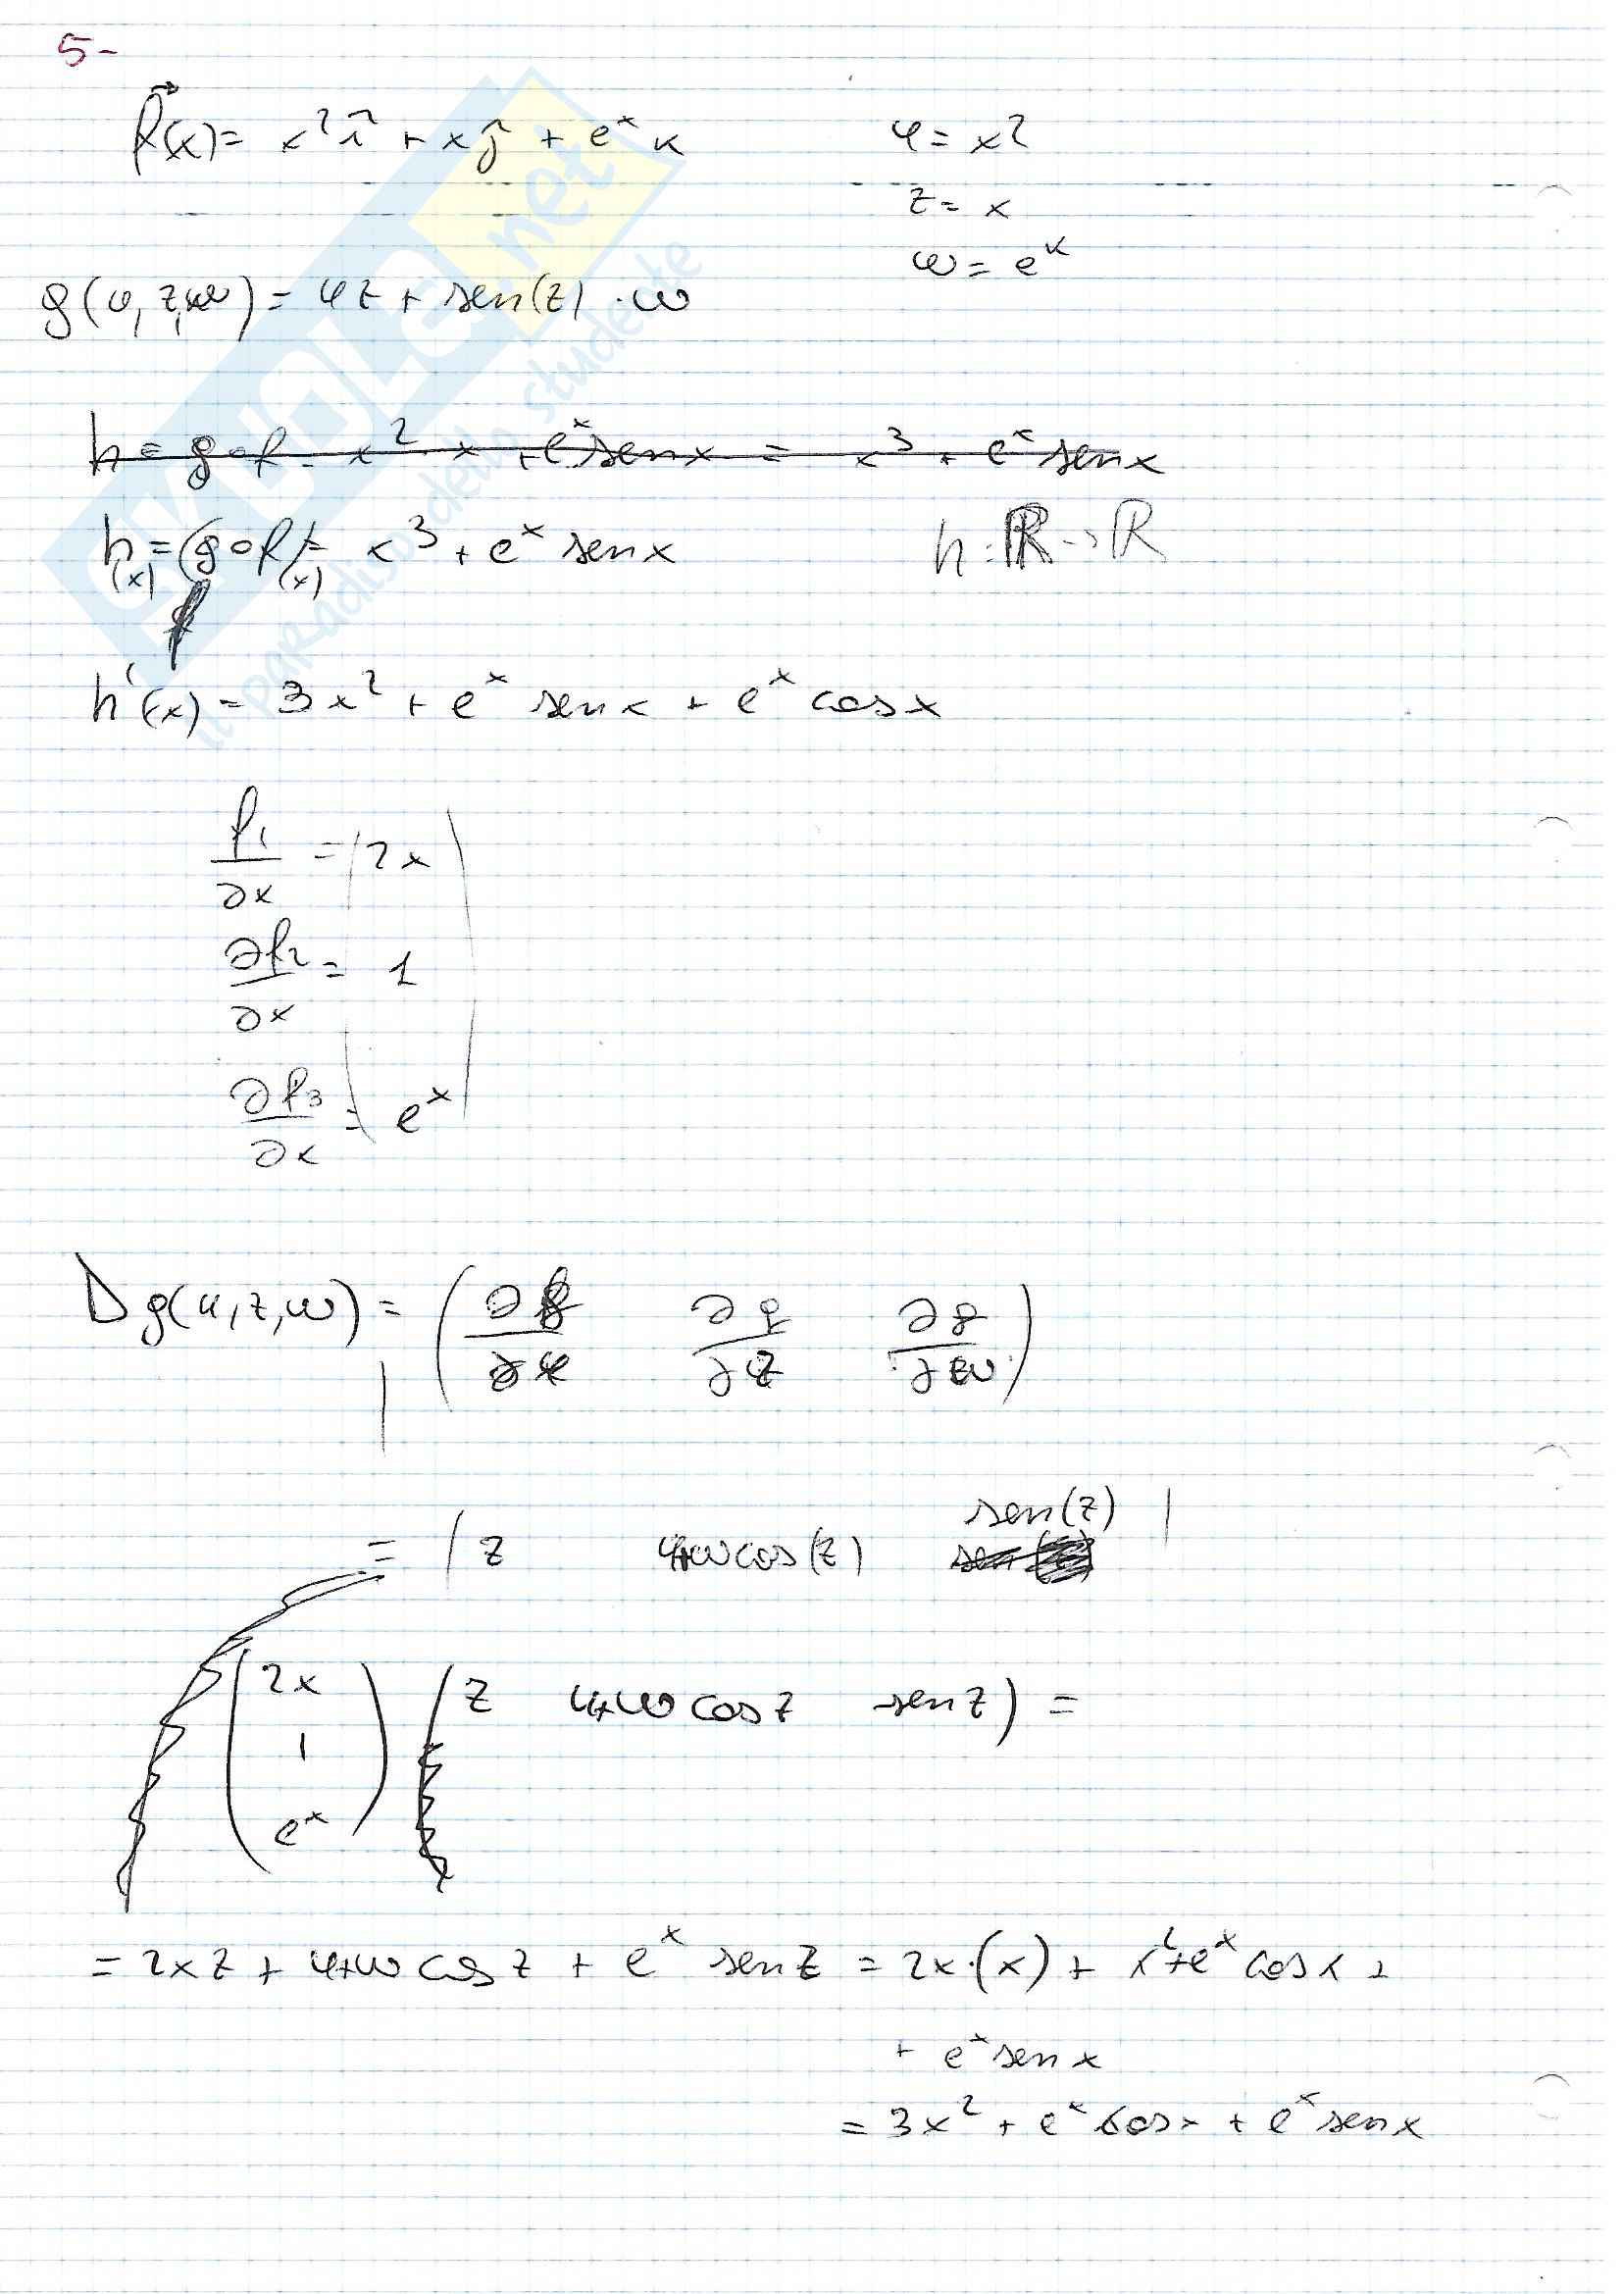 5-
f⃗(x) = x² î + x ĵ + eˣ k
y = x²
z = x
w = eˣ
g(y, z, w) = yz + sen(z) · w
h = g∘f = x² · x + eˣ sen x = x³ + eˣ sen x
h(x) = (g∘f)(x) = x³ + eˣ sen x
h: ℝ → ℝ
h'(x) = 3x² + eˣ sen x + eˣ cos x
f₁/∂x = ( 2x )
∂f₂/∂x = 1
∂f₃/∂x = eˣ
Dg(y, z, w) = ( ∂g/∂y ∂g/∂z ∂g/∂w )
= ( z y+w cos(z) sen(z) )
( 2x 1 eˣ ) ( z y+w cos z sen z ) =
= 2xz + y+w cos z + eˣ sen z = 2x·(x) + x²+eˣ cos x +
+ eˣ sen x
= 3x² + eˣ cos x + eˣ sen x
SKUOLA.net
il paradiso dello studente